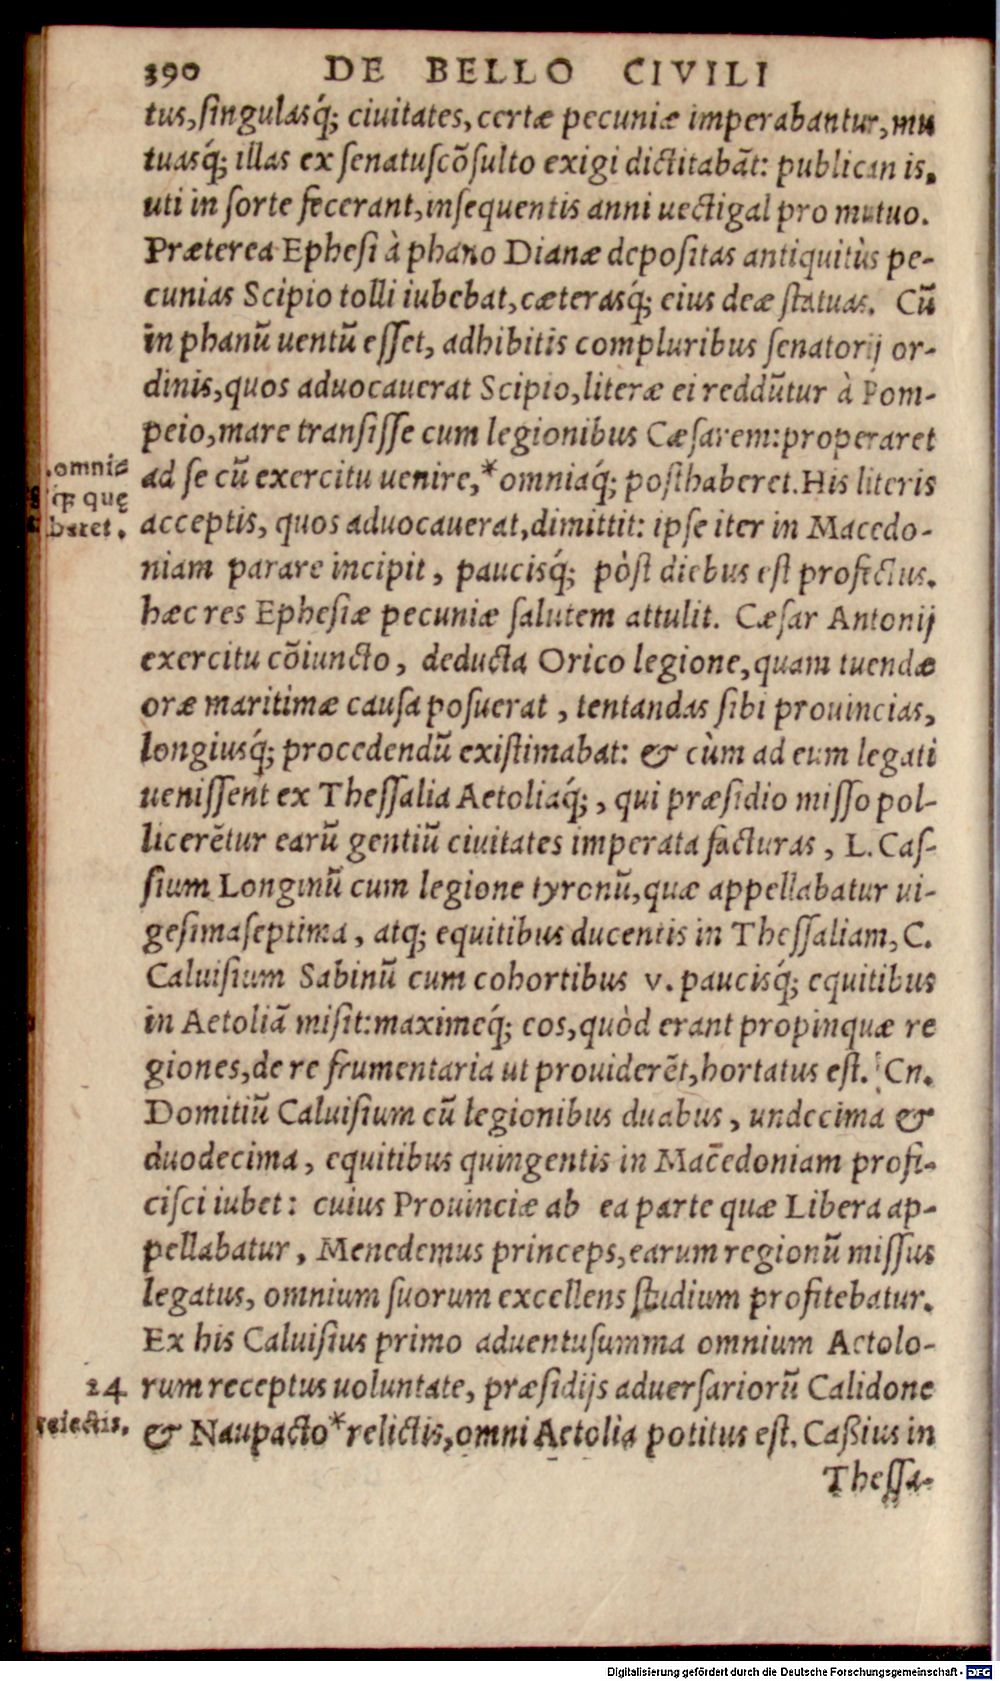 390 DE BELLO CIVILI
tus, singulasq́; ciuitates, certæ pecuniæ imperabantur, mu
tuasq́; illas ex senatuscõsulto exigi dictitabãt: publicanis,
uti in sorte fecerant, insequentis anni uectigal pro mutuo.
Præterea Ephesi à phano Dianæ depositas antiquitùs pe-
cunias Scipio tolli iubebat, cæterasq́; eius deæ statuas. Cũ
in phanũ uentũ esset, adhibitis compluribus senatorij or-
dinis, quos aduocauerat Scipio, literæ ei reddũtur à Pom-
peio, mare transisse cum legionibus Cæsarem: properaret
ad se cũ exercitu uenire, *omniaq́; posthaberet. His literis
acceptis, quos aduocauerat, dimittit: ipse iter in Macedo-
niam parare incipit, paucisq́; pòst diebus est profectus.
hæc res Ephesiæ pecuniæ salutem attulit. Cæsar Antonij
exercitu cõiuncto, deducta Orico legione, quam tuendæ
oræ maritimæ causa posuerat, tentandas sibi prouincias,
longiusq́; procedendũ existimabat: & cùm ad eum legati
uenissent ex Thessalia Aetoliaq́;, qui præsidio misso pol-
licerẽtur earũ gentiũ ciuitates imperata facturas, L. Cas-
sium Longinũ cum legione tyronũ, quæ appellabatur ui-
gesimaseptima, atq; equitibus ducentis in Thessaliam, C.
Caluisium Sabinũ cum cohortibus v. paucisq́; equitibus
in Aetoliã misit: maximeq́; eos, quòd erant propinquæ re
giones, de re frumentaria ut prouiderẽt, hortatus est. Cn.
Domitiũ Caluisium cũ legionibus duabus, undecima &
duodecima, equitibus quingentis in Macẽdoniam profi-
cisci iubet: cuius Prouinciæ ab ea parte quæ Libera ap-
pellabatur, Menedemus princeps, earum regionũ missus
legatus, omnium suorum excellens studium profitebatur.
Ex his Caluisius primo aduentu summa omnium Aetolo-
rum receptus uoluntate, præsidijs aduersariorũ Calidone
& Naupacto *relictis, omni Aetolia potitus est. Caßius in
Thessa-
omnia
q́; quę
baret.
24
reiectis.
Digitalisierung gefördert durch die Deutsche Forschungsgemeinschaft - DFG